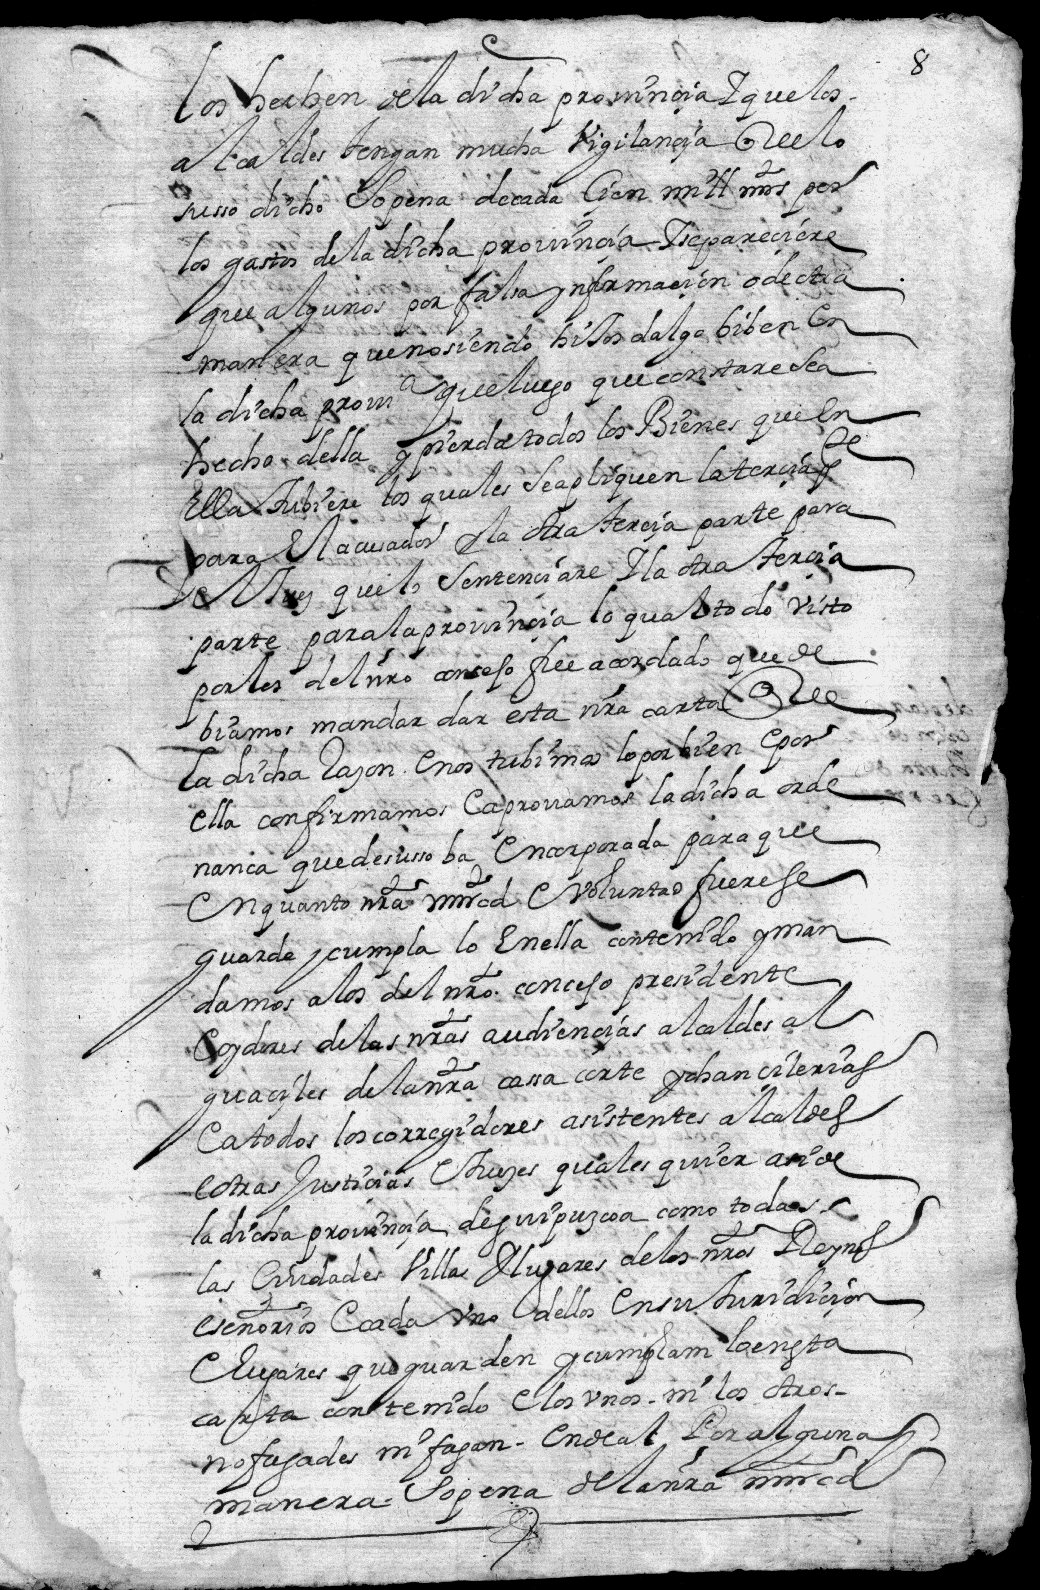 8
los hechen de la dicha provinçia Y que los
alcaldes tengan mucha vigilançia en lo
susso dicho So pena de cada Çien mill mrs por
los gastos de la dicha provinçia Y si pareçiere
que algunos por falsa ynformaçion o de otra
manera que no siendo hijos dalgo biben En
la dicha provi^a que luego que constare Sea
hecho della y pierda todos los Bienes que En
Ella tubiere los quales Se apliquen la terçia pte
para El acusador y la otra terçia parte para
el Juez que lo Sentençiare Y la otra terçia
parte para la provinçia lo qual todo visto
por los del nro consejo fue acordado que de
biamos mandar dar esta nra carta En
la dicha Razon E nos tubimos lo por bien E por
ella confirmamos E aprovamos la dicha orde
nança que de susso ba Encorporada para que
En quanto nra mrd E voluntad fuere se
guarde y cumpla lo En ella contenido y man
damos a los del nro consejo presidente
E oydores de las nras audiençias alcaldes al
guaçiles de la nra cassa corte y chancilerias
E a todos los corregidores asistentes alcaldes
E otras Justiçias E Juezes quales quier asi de
la dicha provinçia de guipuzcoa como todas
las Çiudades Villas E lugares de los nros Reynos
E señorios E cada vno dellos En su Juridiçion
E lugares que guarden y cumplam lo en esta
carta contenido E los vnos ni los otros
no fagades ni fagan Ende al Por alguna
manera So pena de la nra mrd